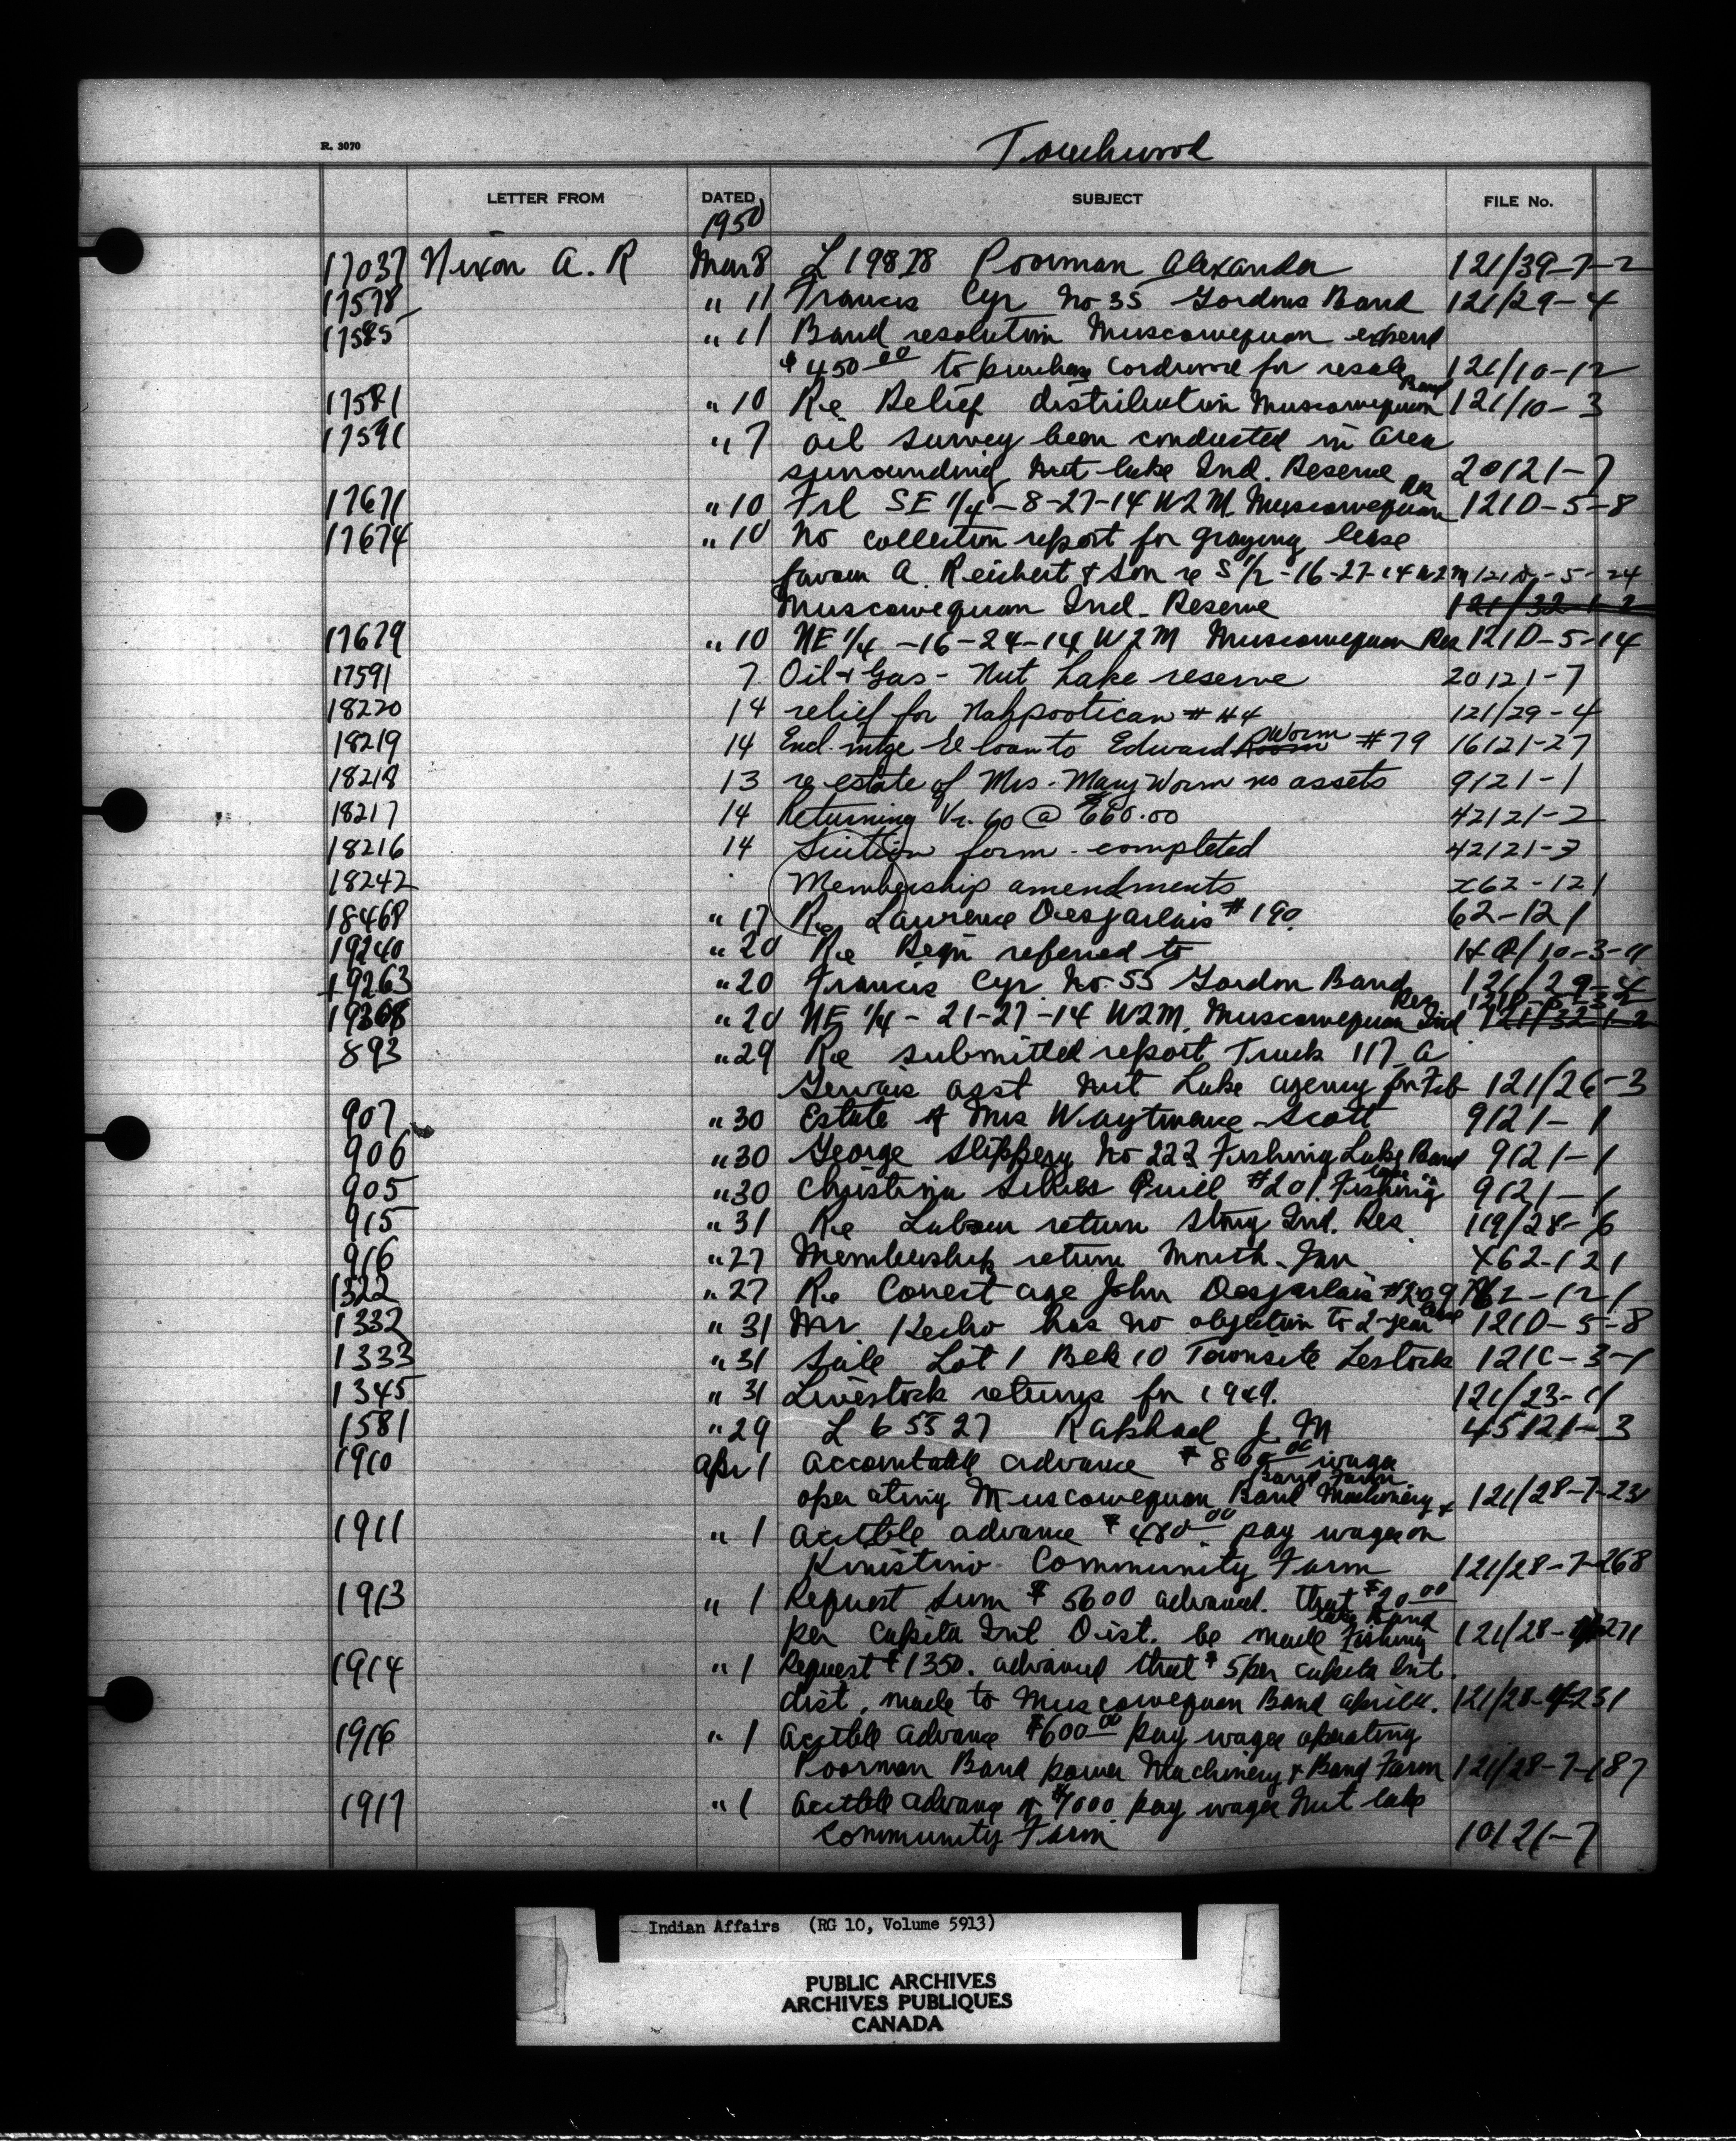 R. 3070
Touchwood
LETTER FROM DATED SUBJECT FILE No.
1950
17037 Nixon A. R Mar 8 L 19878 Poorman Alexander 121/39-7-2
17578 " 11 Francis Cyr No 35 Gordons Band 121/29-4
17585 " 11 Band resolution Muscowequan expend
$450 00 to purchase Cordwood for resale 121/10-12
17581 " 10 Re Relief distribution Muscowequan Band 121/10-3
17591 " 7 Oil survey been conducted in area
surrounding Nut lake Ind. Reserve 20121-7
17671 " 10 Frl SE 1/4-8-27-14 W2M. Muscowequan Res 121D-5-8
17674 " 10 No collection report for grazing lease
favour A. Reichert & Son re S 1/2-16-27-14 W2M 121D-5-24
Muscowequan Ind. Reserve 121/32-1-2
17679 " 10 NE 1/4 -16-24-14 W2M Muscowequan Res 121D-5-14
17591 7 Oil & Gas - Nut Lake reserve 20121-7
18220 14 relief for Nahpootican # 44 121/29-4
18219 14 Encl. mtge & loan to Edward Worm #79 16121-27
18218 13 re estate of Mrs. Mary Worm no assets 9121-1
18217 14 Returning Vr. 60 @ $60.00 42121-2
18216 14 form - completed 42121-3
18242 Membership amendments x62-121
18468 " 17 Re Lawrence Desjarlais #190. 62-121
19240 " 20 Re Reqn referred to
19263 " 20 Francis Cyr. No. 55 Gordon Band 121/29-4
19308 " 20 NE 1/4 - 21-27-14 W2M. Muscowequan Ind Res 121/32-1-2
893 " 29 Re submitted report Truck 117 A
Gervais asst Nut Lake agency for Feb 121/26-3
907 " 30 Estate of Mrs Scott 9121-1
906 " 30 George Slippery No 222 Fishing Lake Band 9121-1
905 " 30 Christina Quill #201. Fishing Lake 9121-1
915 " 31 Re Labour return Stony Ind. Res. 119/28-6
916 " 27 Membership return Month. Jan. x62-121
1322 " 27 Re Correct age John Desjarlais #209 62-121
1332 " 31 Mr. has no objection to 2-year lease 121D-5-8
1333 " 31 Sale Lot 1 Blk 10 Townsite Lestock 121C-3-1
1345 " 31 Livestock returns for 1949. 121/23-11
1581 " 29 L 65527 Raphael J. M 45121-3
1910 Apr 1 Accountable advance $ wages
operating Muscowequan Band Machinery & Band Farm 121/28-7-231
1911 " 1 Acctble advance $480 00 pay wages on
Kinistino Community Farm 121/28-7-268
1913 " 1 Request sum $5600 advanced. that $20 00
per capita Int Dist. be made Fishing lake Band 121/28-4-271
1914 " 1 Request $1350. advanced that $5 per capita Int.
dist. made to Muscowequan Band 121/28-4-231
1916 " 1 Acctble advance $600 00 pay wages operating
Poorman Band power Machinery & Band Farm 121/28-7-187
1917 " 1 Acctble advance of $1000 pay wages Nut lake
Community Farm 10121-7
Indian Affairs (RG 10, Volume 5913)
PUBLIC ARCHIVES
ARCHIVES PUBLIQUES
CANADA